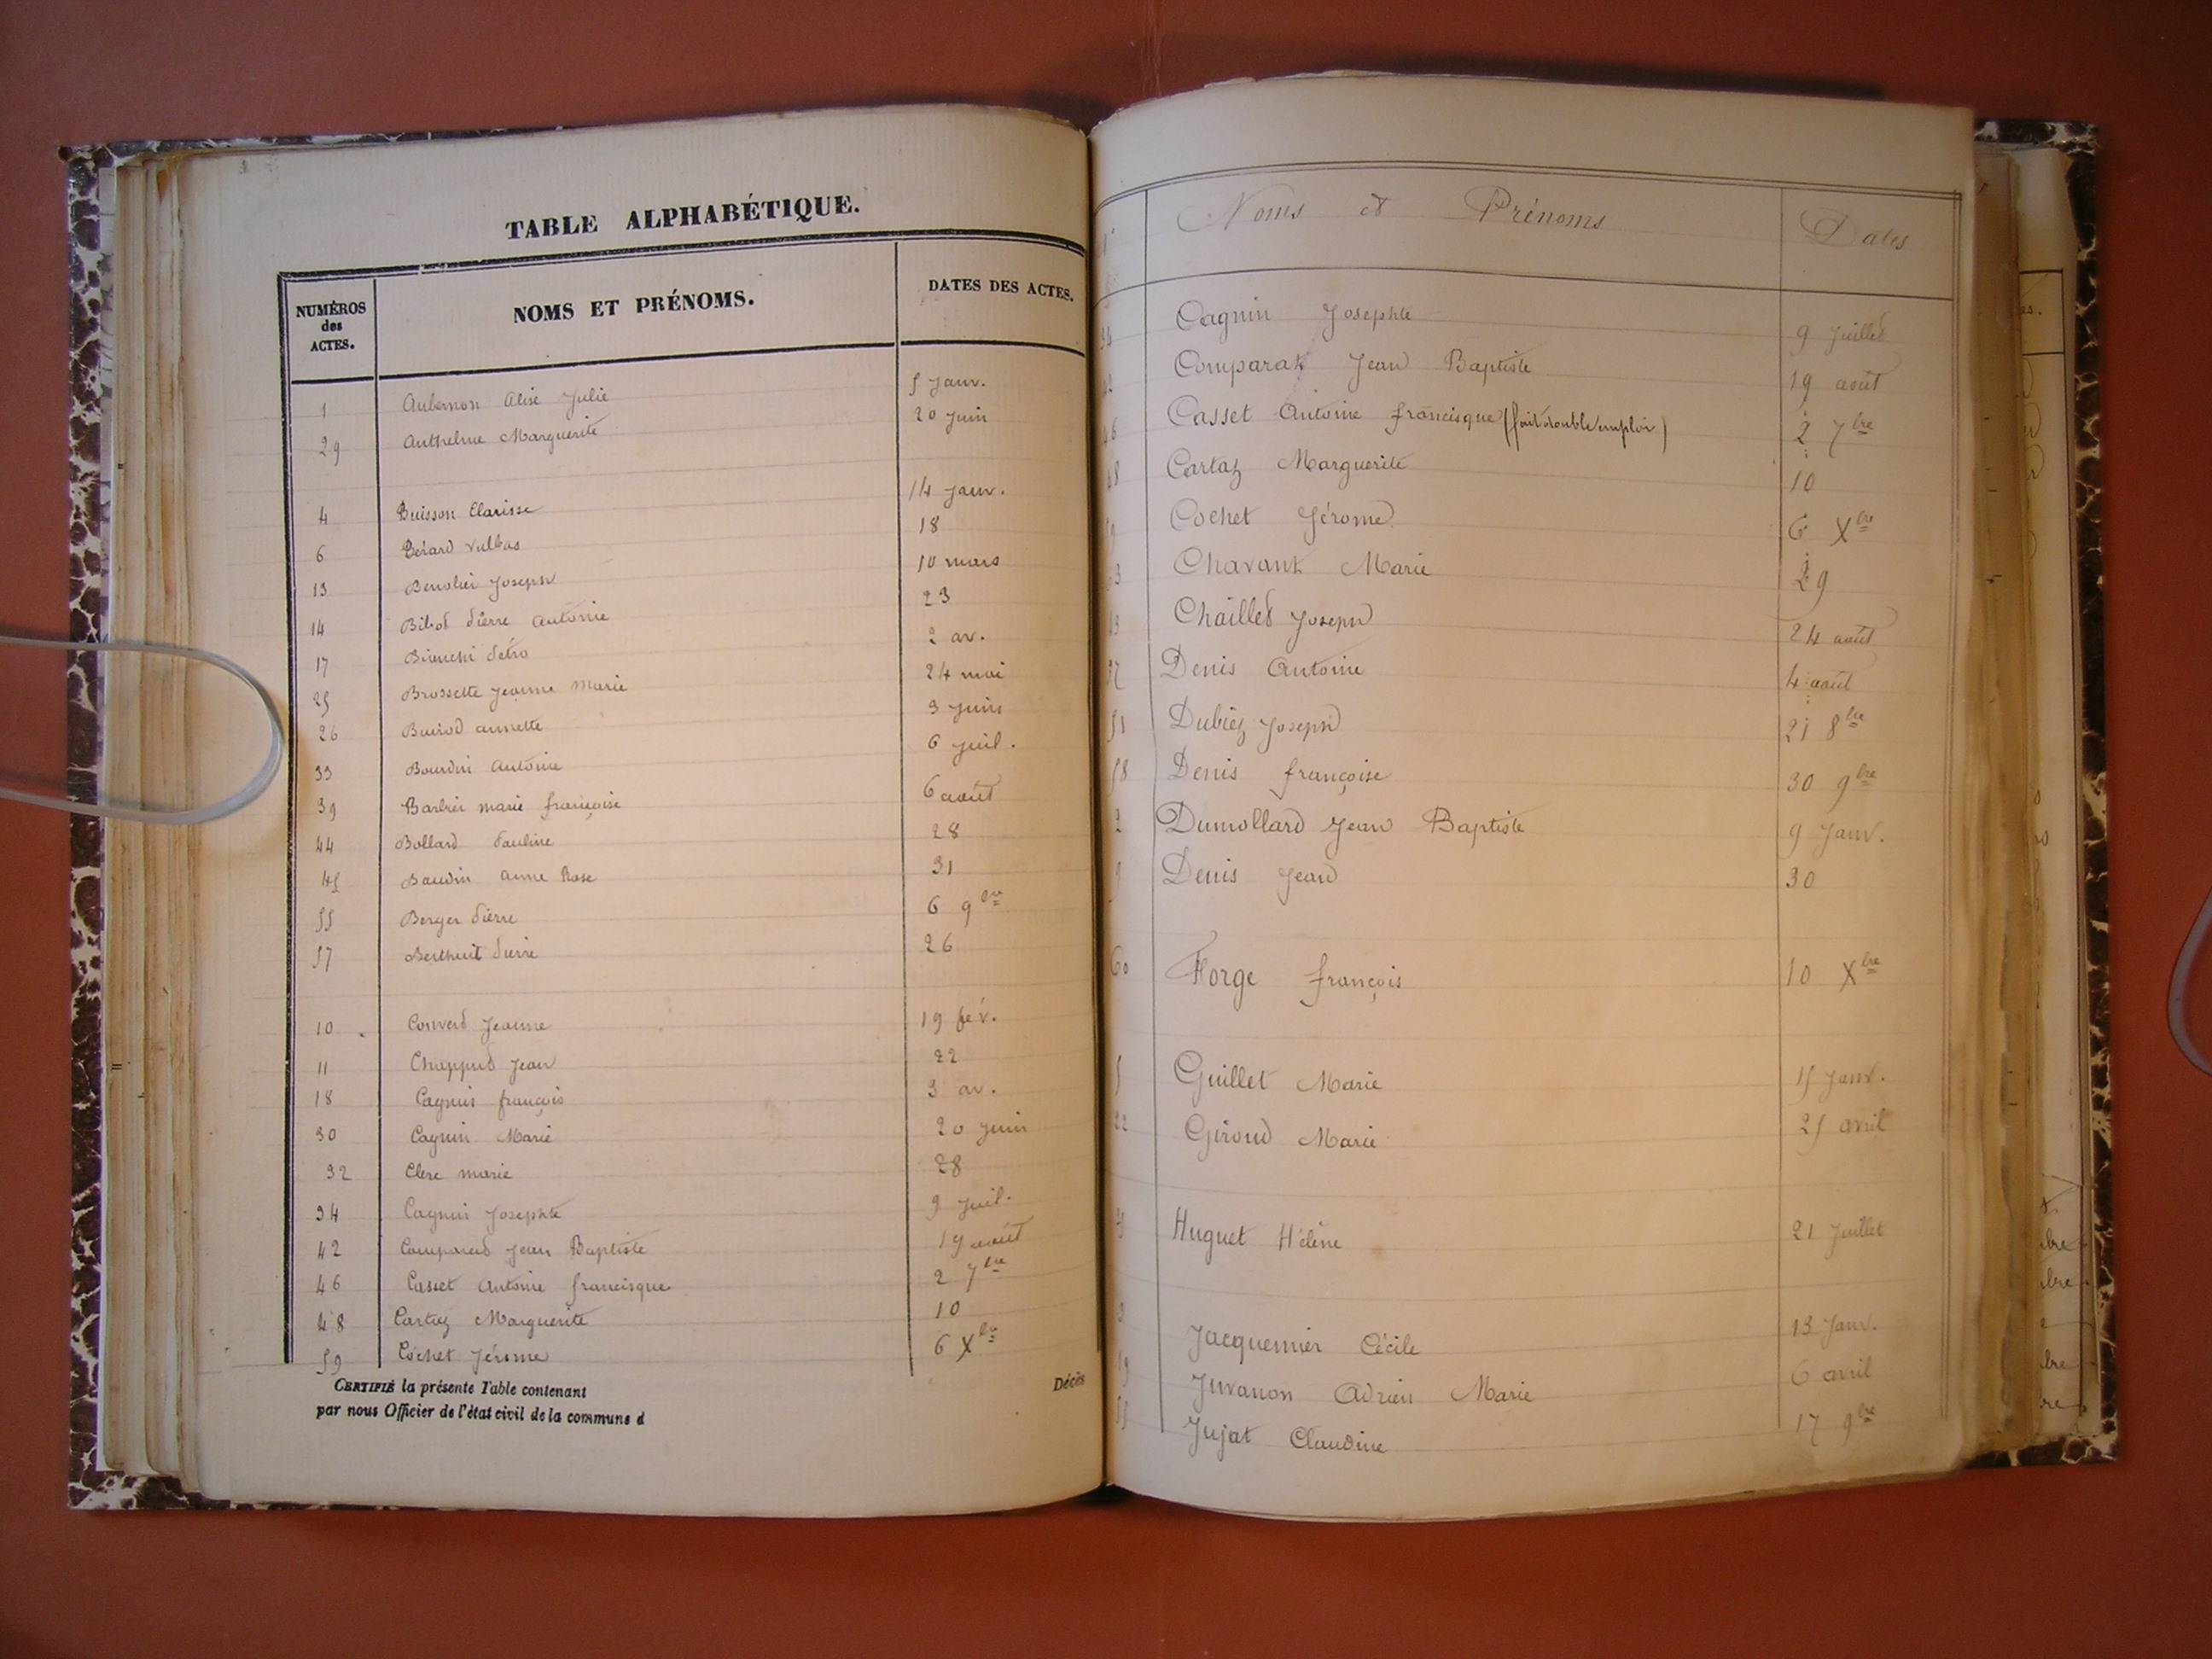 TABLE ALPHABÉTIQUE.
NUMÉROS des ACTES. NOMS ET PRÉNOMS. DATES DES ACTES.
1 Aubernon Alise Julie 5 Janv.
29 Anthelme Marguerite 20 Juin
4 Buisson Clarisse 14 Janv.
6 Bérard Vulbas 18
13 Benolier Joseph 10 mars
14 Bibot Pierre Antoine 23
17 Bianchi Pétro 2 av.
25 Brossette Jeanne Marie 24 mai
26 annette 3 Juin
33 Bourdin Antoine 6 Juil.
39 Barbier marie françoise 6 août
44 Bollard Pauline 28
45 Baudin Anne Rose 31
55 Berger Pierre 6 9bre
57 Berthuit Pierre 26
10 Convert Jeanne 19 fév.
11 Chapput Jean 22
18 Cagnin françois 3 av.
30 Cagnin Marie 20 Juin
32 Clerc marie 28
34 Cagnin Josephte 9 Juil.
42 Comparat Jean Baptiste 19 août
46 Casset Antoine francisque 2 7bre
48 Cartaz Marguerite 10
59 Cochet Jérome 6 Xbre
CERTIFIÉ la présente Table contenant Décès
par nous Officier de l'état civil de la commune d
Noms et Prénoms Dates
Cagnin Josephte 9 Juillet
Comparat Jean Baptiste 19 août
Casset Antoine francisque (fait double emploi) 2 7bre
48 Cartaz Marguerite 10
Cochet Jérome 6 Xbre
Chavant Marie 29
Chaillet Joseph 24 août
37 Denis Antoine 4 août
51 Dubiez Joseph 21 8bre
58 Denis françoise 30 9bre
2 Dumollard Jean Baptiste 9 Janv.
9 Denis Jean 30
60 Forge françois 10 Xbre
5 Guillet Marie 15 Janv.
22 Giroud Marie 25 avril
Huguet Hélène 21 Juillet
3 Jacquemier Cécile 13 Janv.
19 Juvanon Adrien Marie 6 avril
Jujat Claudine 17 9bre